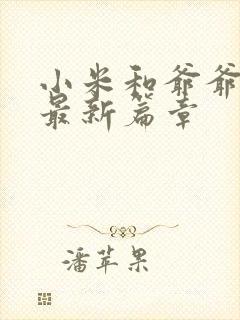 小米和爷爷
最新篇章
潘苹果